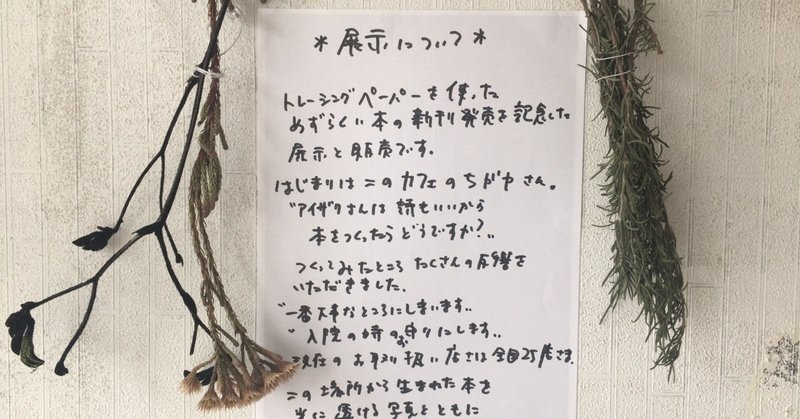 *展示について*
トレーシングペーパーを使った
めずらしい本の新刊発売を記念した
展示と販売です。
はじまりはこのカフェのちがやさん。
"アイザワさんは詩もいいから
本をつくったらどうですか?"
つくってみたところたくさんの反響を
いただきました。
"一番大事なところにしまいます"
"入院の時のお守りにします"
現在のお取り扱い店さは全国25店さま
この場所から生まれた本を
光に透ける写真とともに